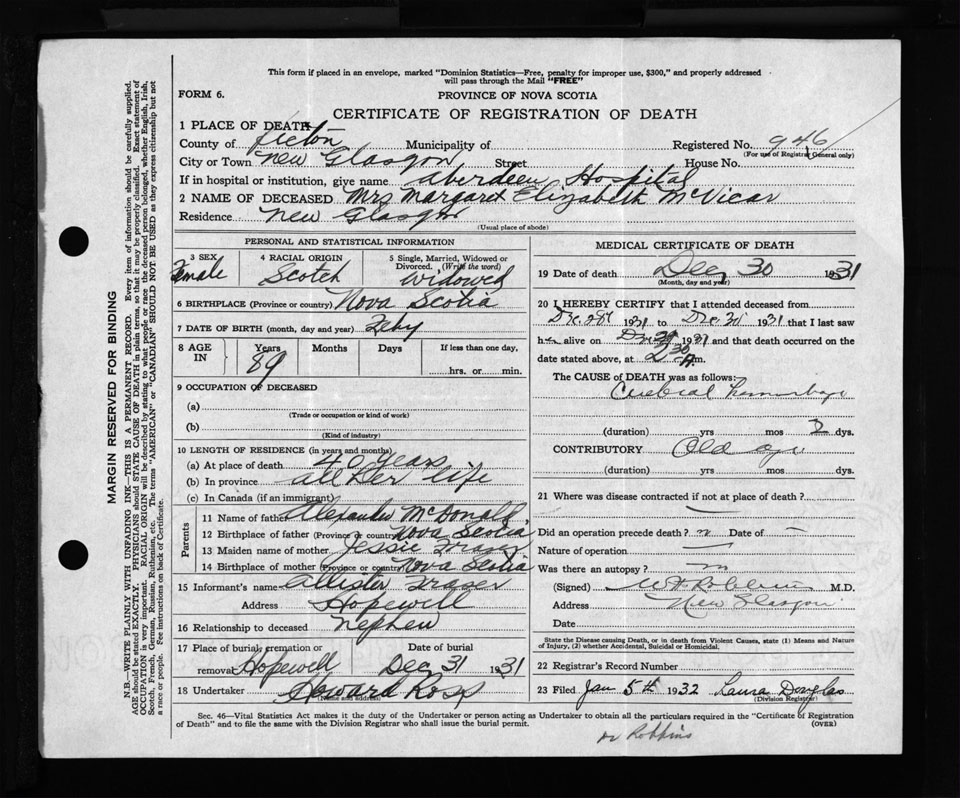 This form if placed in an envelope, marked "Dominion Statistics—Free, penalty for improper use, $300," and properly addressed
will pass through the Mail "FREE"
FORM 6.
PROVINCE OF NOVA SCOTIA
CERTIFICATE OF REGISTRATION OF DEATH
1 PLACE OF DEATH
County of Pictou Municipality of Registered No. 946
(For use of Registrar General only)
City or Town New Glasgow Street House No.
If in hospital or institution, give name Aberdeen Hospital
2 NAME OF DECEASED Mrs Margaret Elizabeth McVicar
Residence New Glasgow
(Usual place of abode)
PERSONAL AND STATISTICAL INFORMATION
3 SEX Female
4 RACIAL ORIGIN Scotch
5 Single, Married, Widowed or Divorced. (Write the word) Widowed
6 BIRTHPLACE (Province or country) Nova Scotia
7 DATE OF BIRTH (month, day and year)
8 AGE IN Years 89 Months Days If less than one day, hrs. or min.
9 OCCUPATION OF DECEASED
(a)
(Trade or occupation or kind of work)
(b)
(Kind of industry)
10 LENGTH OF RESIDENCE (in years and months)
(a) At place of death 40 years
(b) In province all her life
(c) In Canada (if an immigrant)
Parents
11 Name of father Alexander McDonald
12 Birthplace of father (Province or country) Nova Scotia
13 Maiden name of mother Jessie Fraser
14 Birthplace of mother (Province or country) Nova Scotia
15 Informant's name Allister Fraser
Address Hopewell
16 Relationship to deceased nephew
17 Place of burial, cremation or removal Hopewell
Date of burial Dec 31 1931
18 Undertaker Howard Ross
(Name and address)
MEDICAL CERTIFICATE OF DEATH
19 Date of death Dec 30 1931
(Month, day and year)
20 I HEREBY CERTIFY that I attended deceased from
Dec 28 1931 to Dec 30 1931 that I last saw
her alive on Dec 1931 and that death occurred on the
date stated above, at 2 30 A m.
The CAUSE of DEATH was as follows:
Cerebral hemorrhage
(duration) yrs mos 2 dys.
CONTRIBUTORY Old age
(duration) yrs mos dys.
21 Where was disease contracted if not at place of death?
Did an operation precede death? n Date of
Nature of operation
Was there an autopsy? no
(Signed) M.D.
Address New Glasgow
Date
State the Disease causing Death, or in death from Violent Causes, state (1) Means and Nature
of Injury, (2) whether Accidental, Suicidal or Homicidal.
22 Registrar's Record Number
23 Filed Jan 5th 1932 Laura Douglas
(Division Registrar)
Sec. 46—Vital Statistics Act makes it the duty of the Undertaker or person acting as Undertaker to obtain all the particulars required in the "Certificate of Registration
of Death" and to file the same with the Division Registrar who shall issue the burial permit.
(OVER)
Dr Robbins
MARGIN RESERVED FOR BINDING
N.B.—WRITE PLAINLY WITH UNFADING INK—THIS IS A PERMANENT RECORD. Every item of information should be carefully supplied.
AGE should be stated EXACTLY. PHYSICIANS should STATE CAUSE OF DEATH in plain terms, so that it may be properly classified. Exact statement of
OCCUPATION is very important. RACIAL ORIGIN will be described by stating to what people or race the deceased person belonged, whether English, Irish,
Scotch, French, German, Russian, Ruthenian, etc. The terms "AMERICAN" or "CANADIAN" SHOULD NOT BE USED as they express citizenship but not
a race or people. See instructions on back of Certificate.